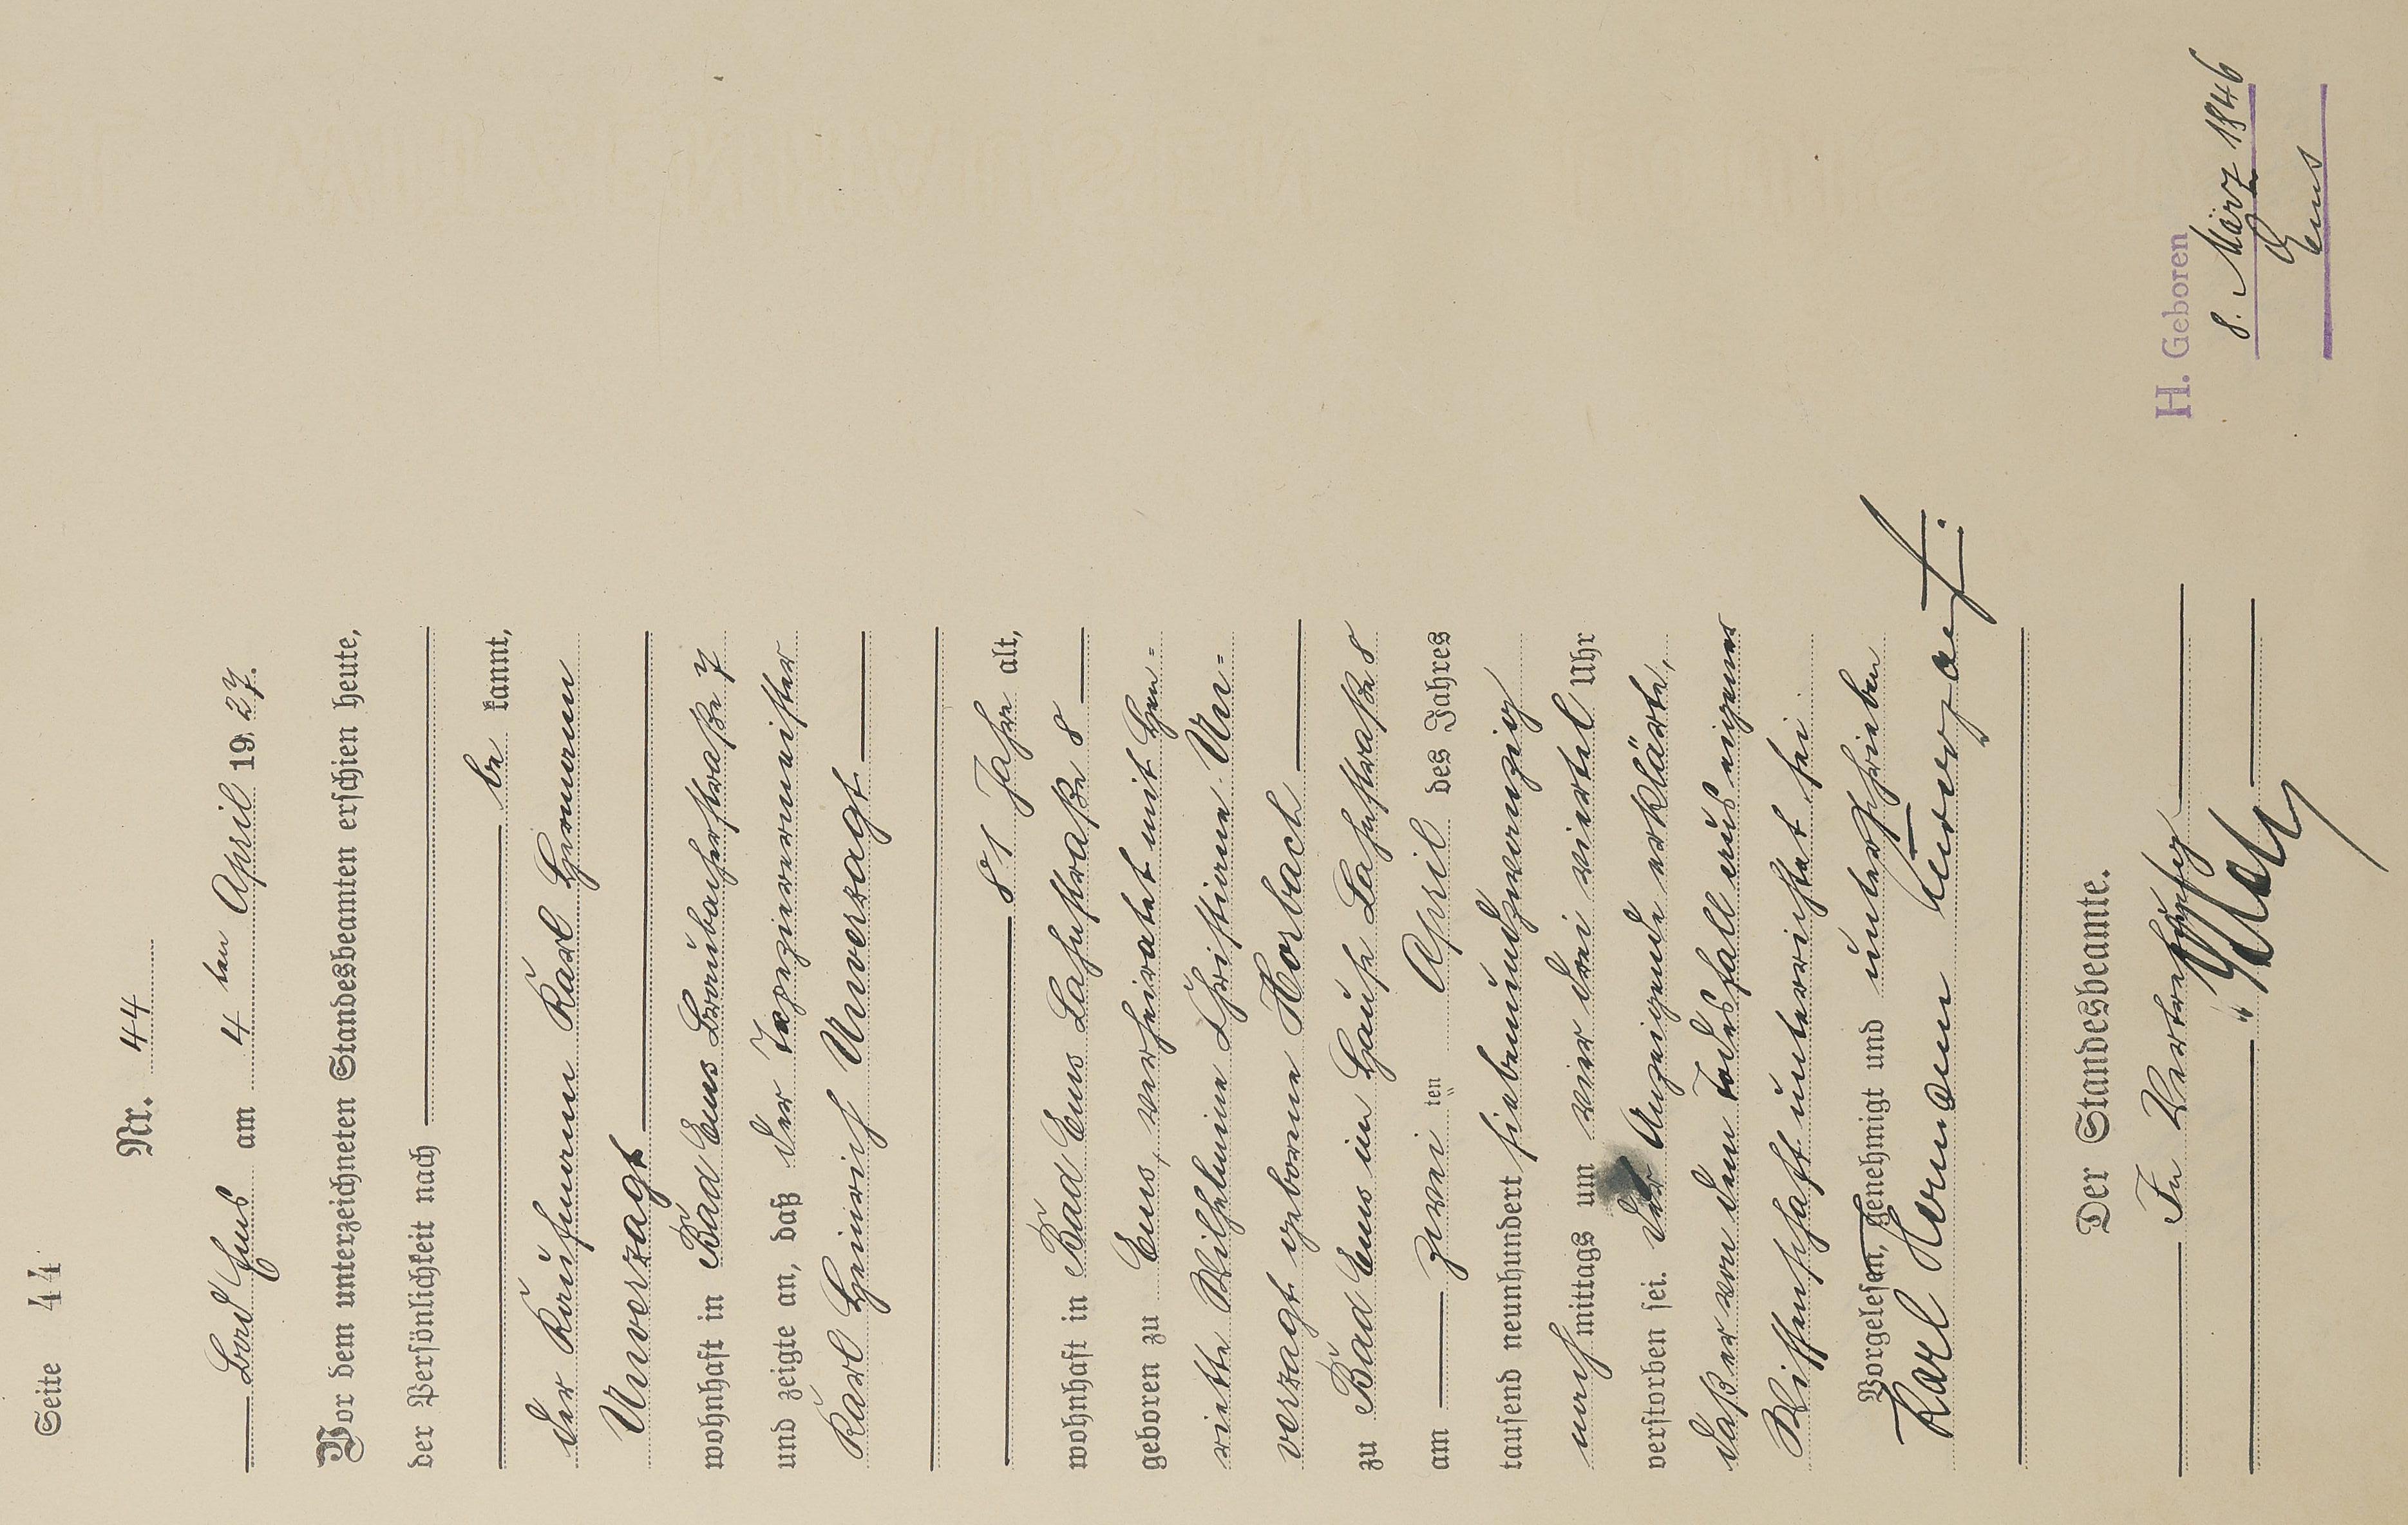 Seite 44
Nr. 44
Bad Ems am 4 ten April 1927.
Vor dem unterzeichneten Standesbeamten erschien heute,
der Persönlichkeit nach
be kannt,
der Kaufmann Karl Hermann
Unverzagt
wohnhaft in Bad Ems Braubacherstraße 7
und zeigte an, daß der Tapezierermeister
Karl Heinrich Unverzagt
81 Jahre alt,
wohnhaft in Bad Ems Lahnstraße 8
geboren zu Ems, verheiratet mit Hen-
riette Wilhelmine Christiane Un-
verzagt geborene Horbach
zu Bad Ems im Hause Lahnstraße 8
am zwei ten April des Jahres
tausend neunhundert siebenundzwanzig
nach mittags um vier drei viertel Uhr
verstorben sei. Der Anzeigende erklärte,
daß er von dem Todesfall aus eigener
Wissenschaft unterrichtet sei.
Vorgelesen, genehmigt und unterschrieben
Karl Hermann Unverzagt.
Der Standesbeamte.
In Vertretung
H. Geboren
8. März 1846
Ems